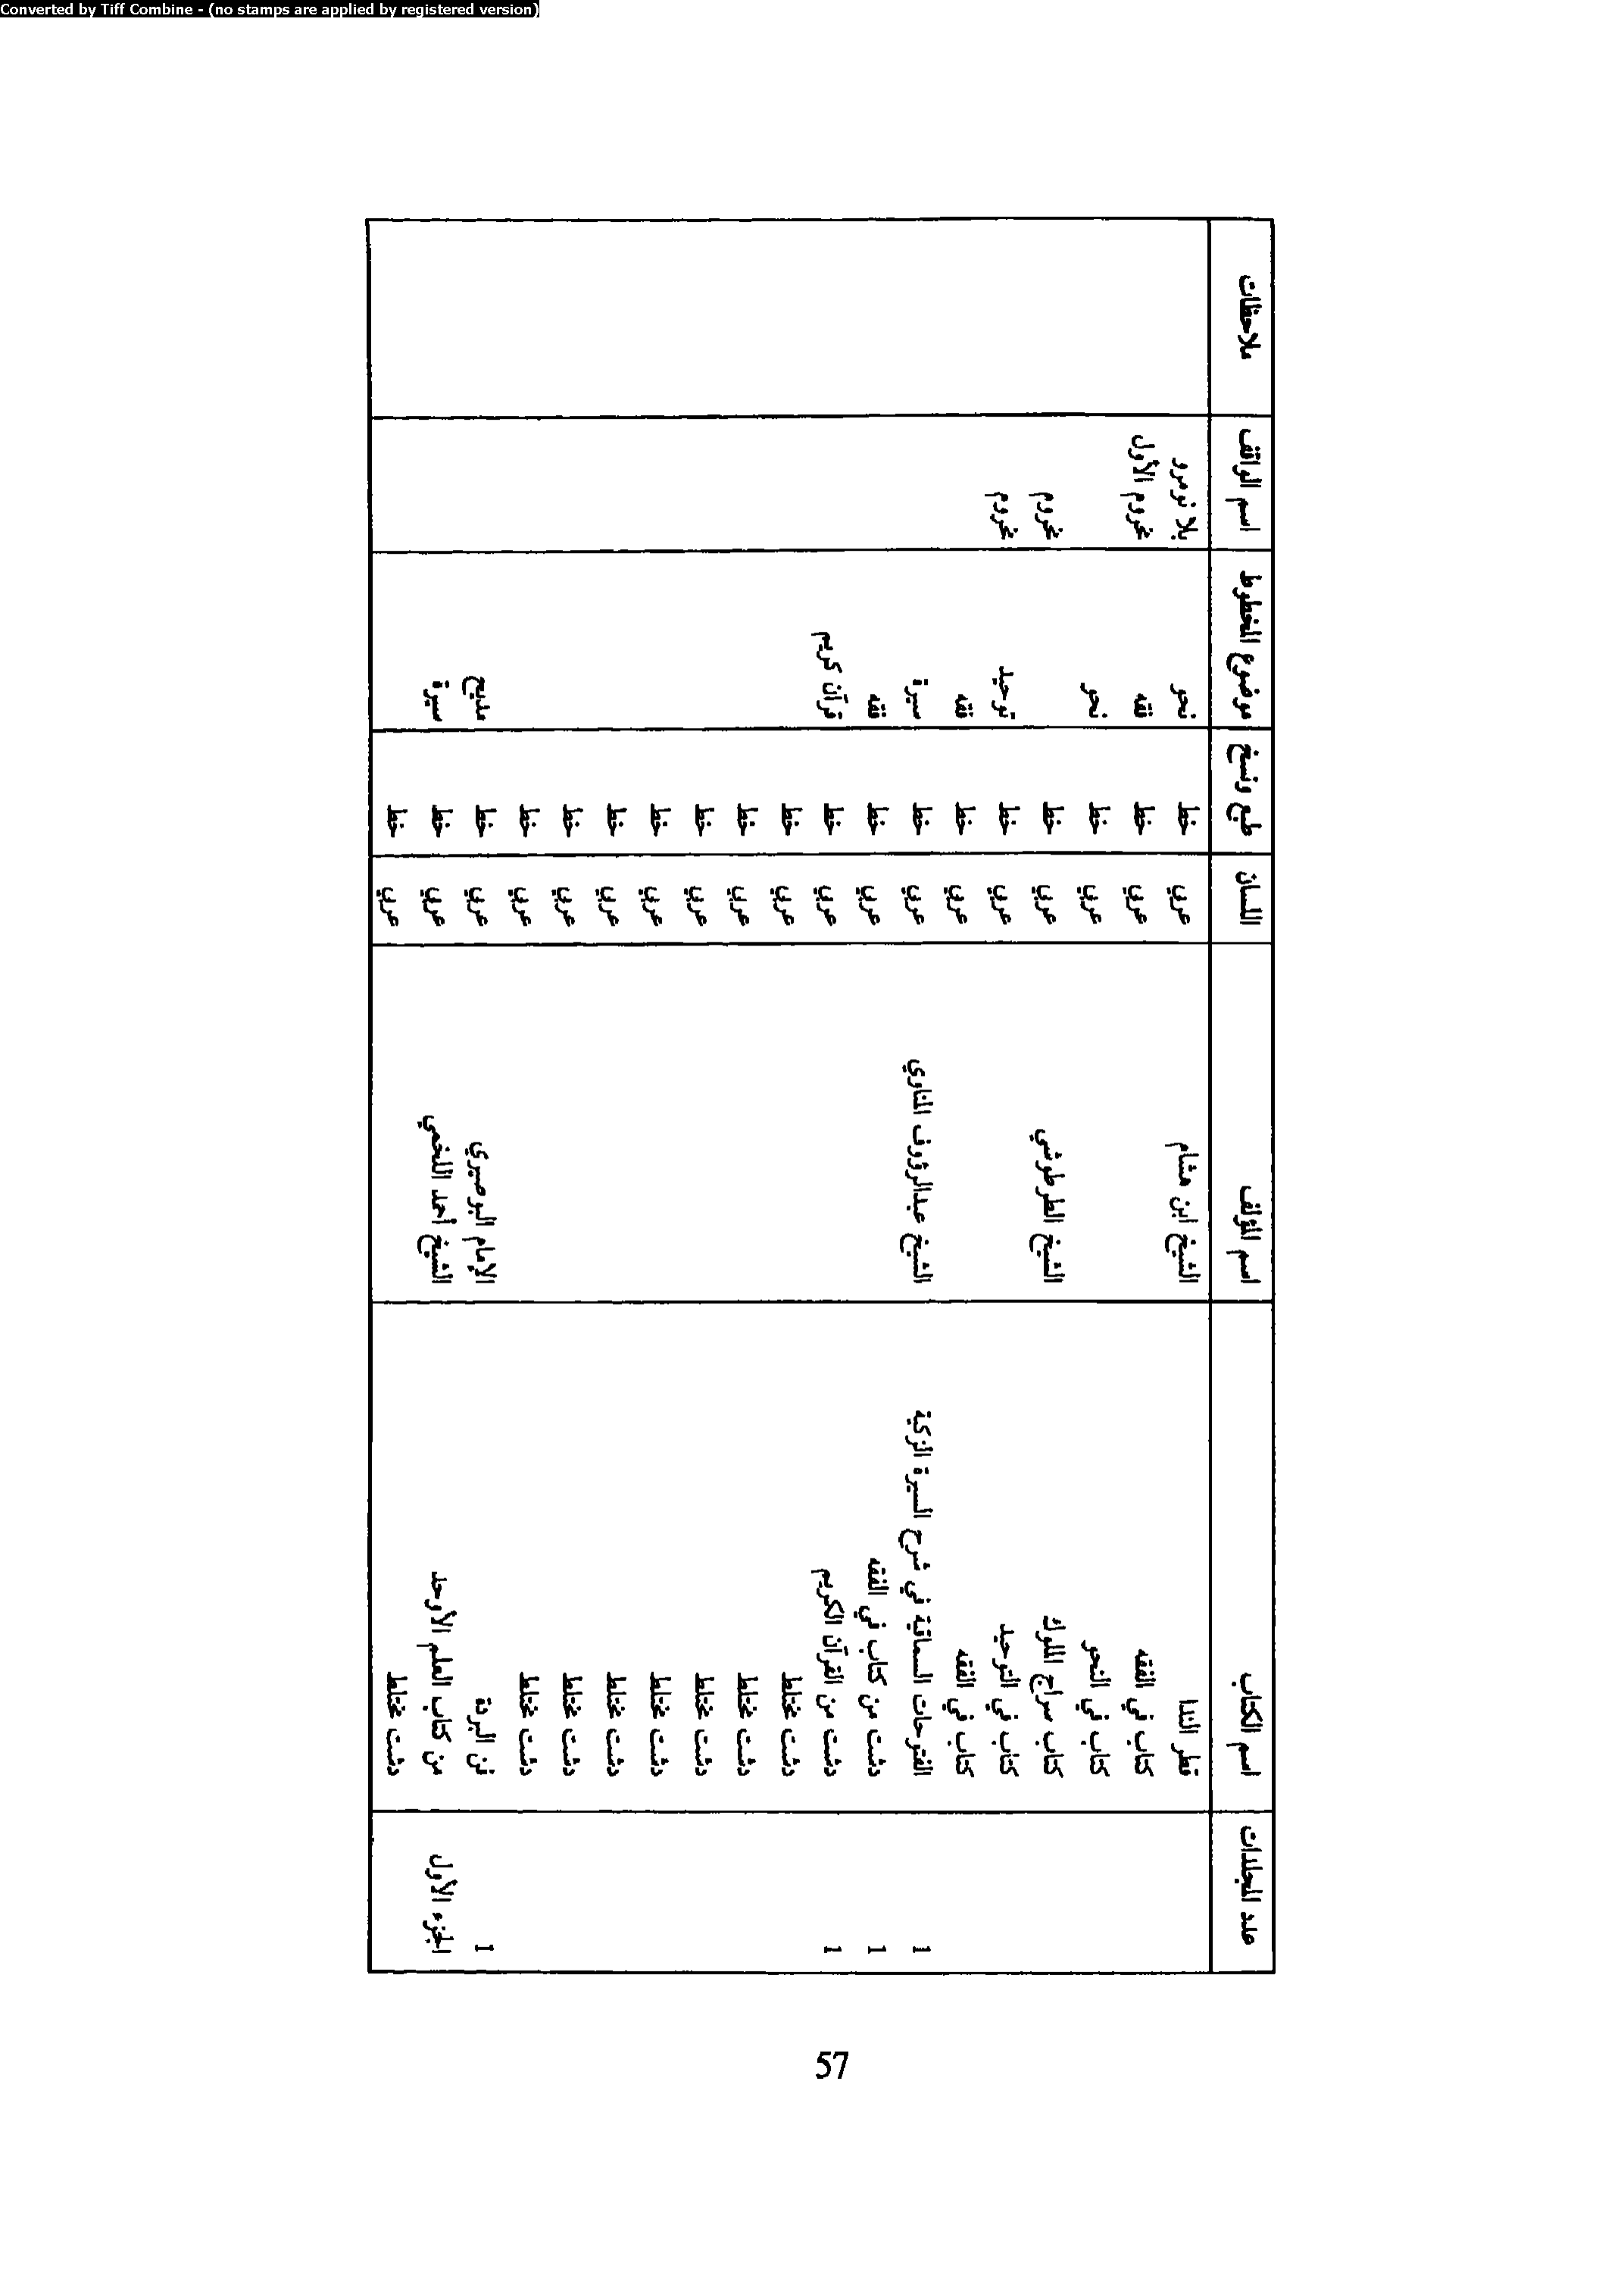 Converted by Tiff Combine - (no stamps are applied by registered version)
عدد المجلدات	اسم الكتاب	اسم المؤلف	اللسان	طبع ونسخ	موضوع المخطوط	اسم الواقف	ملاحظات
قطر الندا	الشيخ ابن هشام	عربي	خط	نحو	بلا نومرو
كتاب في الفقه	عربي	خط	فقه	مخروم الأول
كتاب في النحو	عربي	خط	نحو
كتاب سراج الملوك	الشيخ الطرطوشي	عربي	خط	مخروم
كتاب في التوحيد	عربي	خط	توحيد	مخروم
كتاب في الفقه	عربي	خط	فقه
1	الفتوحات السماقية في شرح السيرة الزكية	الشيخ عبدالرؤوف المناوي	عربي	خط	سيرة
1	دشت من كتاب في الفقه	عربي	خط	فقه
1	دشت من القرآن الكريم	عربي	خط	قرآن كريم
دشت مختلط	عربي	خط
دشت مختلط	عربي	خط
دشت مختلط	عربي	خط
دشت مختلط	عربي	خط
دشت مختلط	عربي	خط
دشت مختلط	عربي	خط
دشت مختلط	عربي	خط
1	البردة	الإمام البوصيري	عربي	خط	مديح
الجزء الأول	من كتاب العلم الأوحد	الشيخ أحمد اللخمي	عربي	خط	سيرة
دشت مختلط	عربي	خط
57